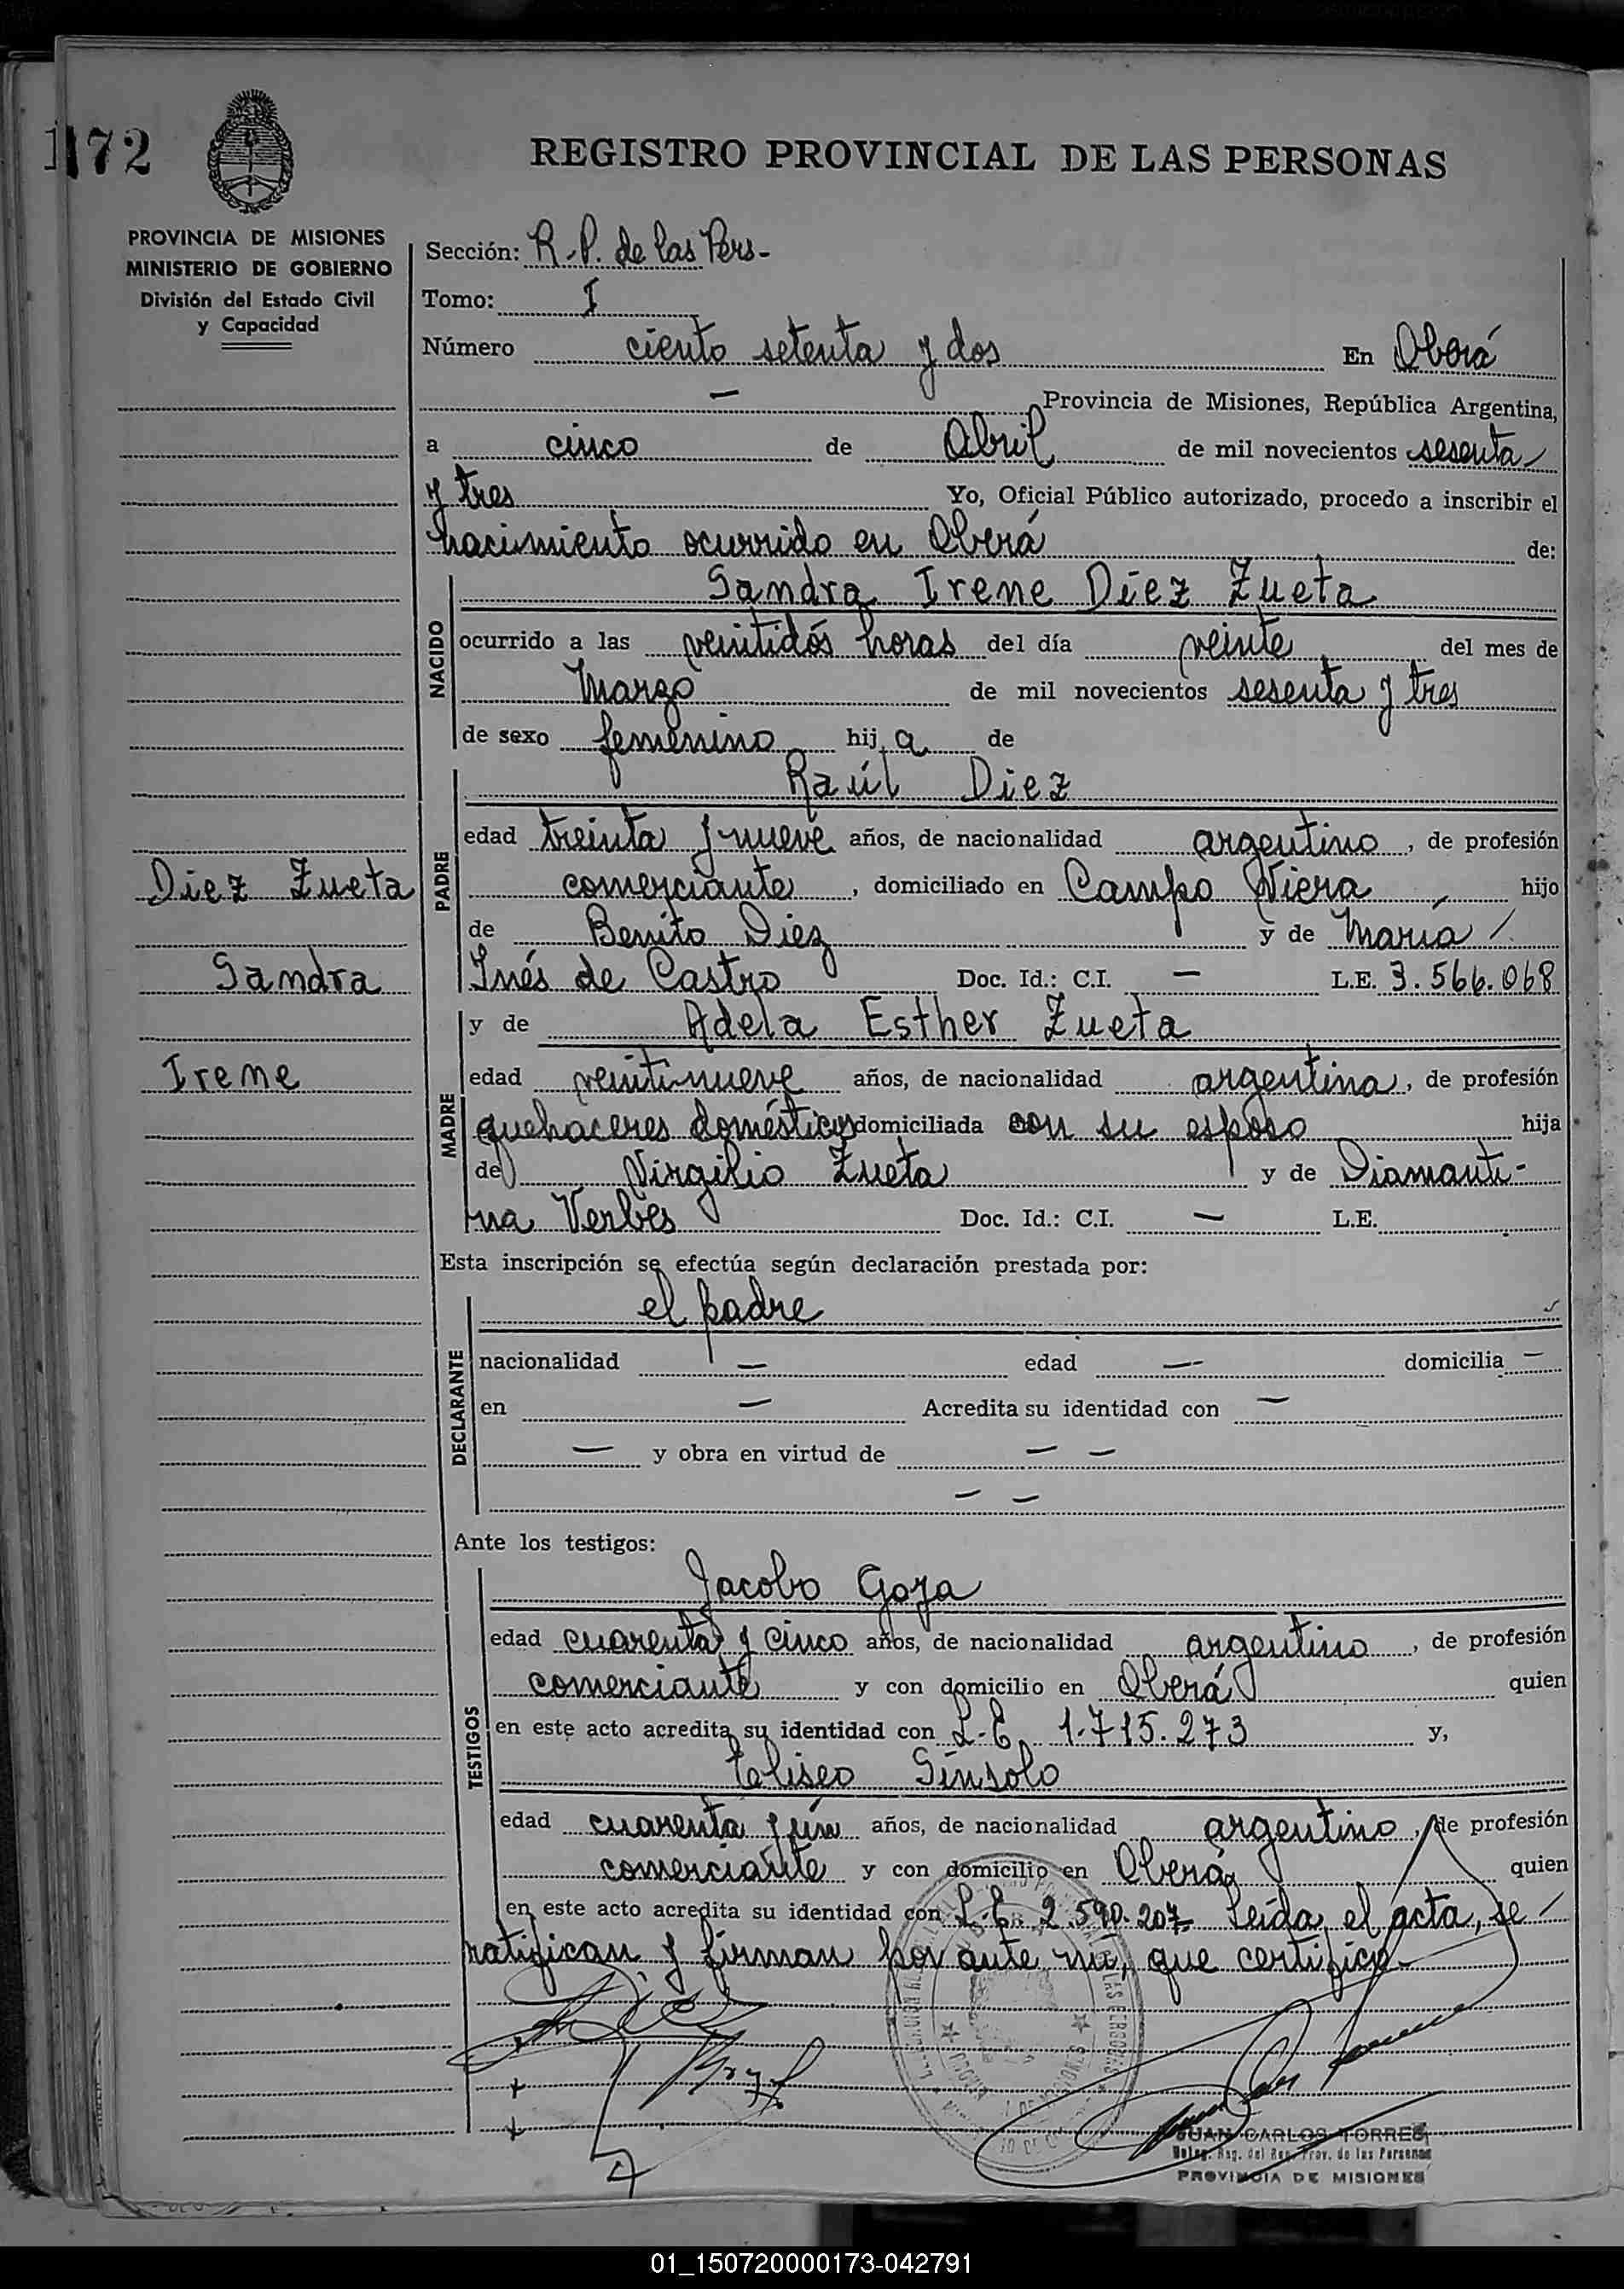 172
REGISTRO PROVINCIAL DE LAS PERSONAS
PROVINCIA DE MISIONES
MINISTERIO DE GOBIERNO
División del Estado Civil
y Capacidad
Sección: R.P. de las Pers-
Tomo: I
Número ciento setenta y dos En Oberá
— Provincia de Misiones, República Argentina,
a cinco de Abril de mil novecientos sesenta
y tres Yo, Oficial Público autorizado, procedo a inscribir el
nacimiento ocurrido en Oberá de:
NACIDO
Sandra Irene Diez Zueta
ocurrido a las veintidós horas del día veinte del mes de
Marzo de mil novecientos sesenta y tres
de sexo femenino hija de
PADRE
Raúl Diez
edad treinta y nueve años, de nacionalidad argentino, de profesión
comerciante, domiciliado en Campo Viera hijo
de Benito Diez y de María
Inés de Castro Doc. Id.: C.I. — L.E. 3.566.068
Diez Zueta
Sandra
Irene
MADRE
y de Adela Esther Zueta
edad veintinueve años, de nacionalidad argentina, de profesión
quehaceres domésticos domiciliada con su esposo hija
de Virgilio Zueta y de Diamanti-
na Verbes Doc. Id.: C.I. — L.E.
Esta inscripción se efectúa según declaración prestada por:
DECLARANTE
el padre
nacionalidad — edad — domicilia —
en — Acredita su identidad con —
— y obra en virtud de — —
— —
Ante los testigos:
TESTIGOS
Jacobo Goza
edad cuarenta y cinco años, de nacionalidad argentino, de profesión
comerciante y con domicilio en Oberá quien
en este acto acredita su identidad con L.E. 1.715.273 y,
Eliseo Sínsolo
edad cuarenta y ún años, de nacionalidad argentino, de profesión
comerciante y con domicilio en Oberá quien
en este acto acredita su identidad con L.E. 2.590.207. Leída el acta, se
ratifican y firman por ante mí, que certifico.
JUAN CARLOS TORRES
Deleg. Reg. del Reg. Prov. de las Personas
PROVINCIA DE MISIONES
01_150720000173-042791